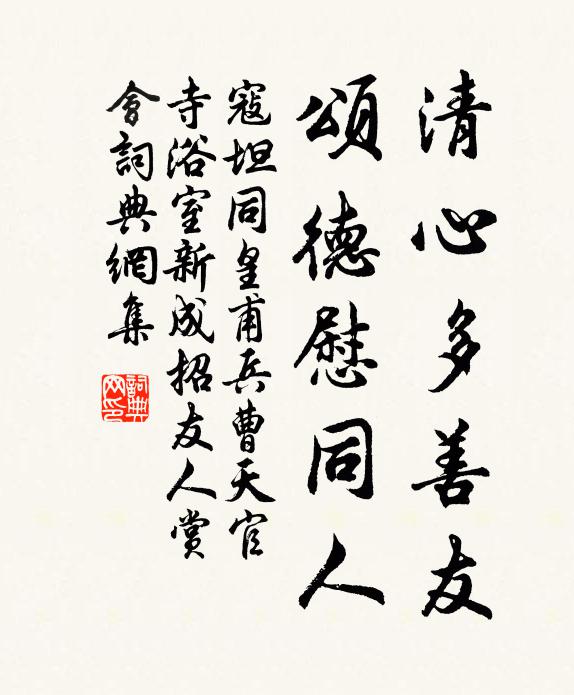 清心多善友
頌德慰同人
寇坦同皇甫兵曹天官
寺浴室新成招友人賞
會詞典網集
詞典網印